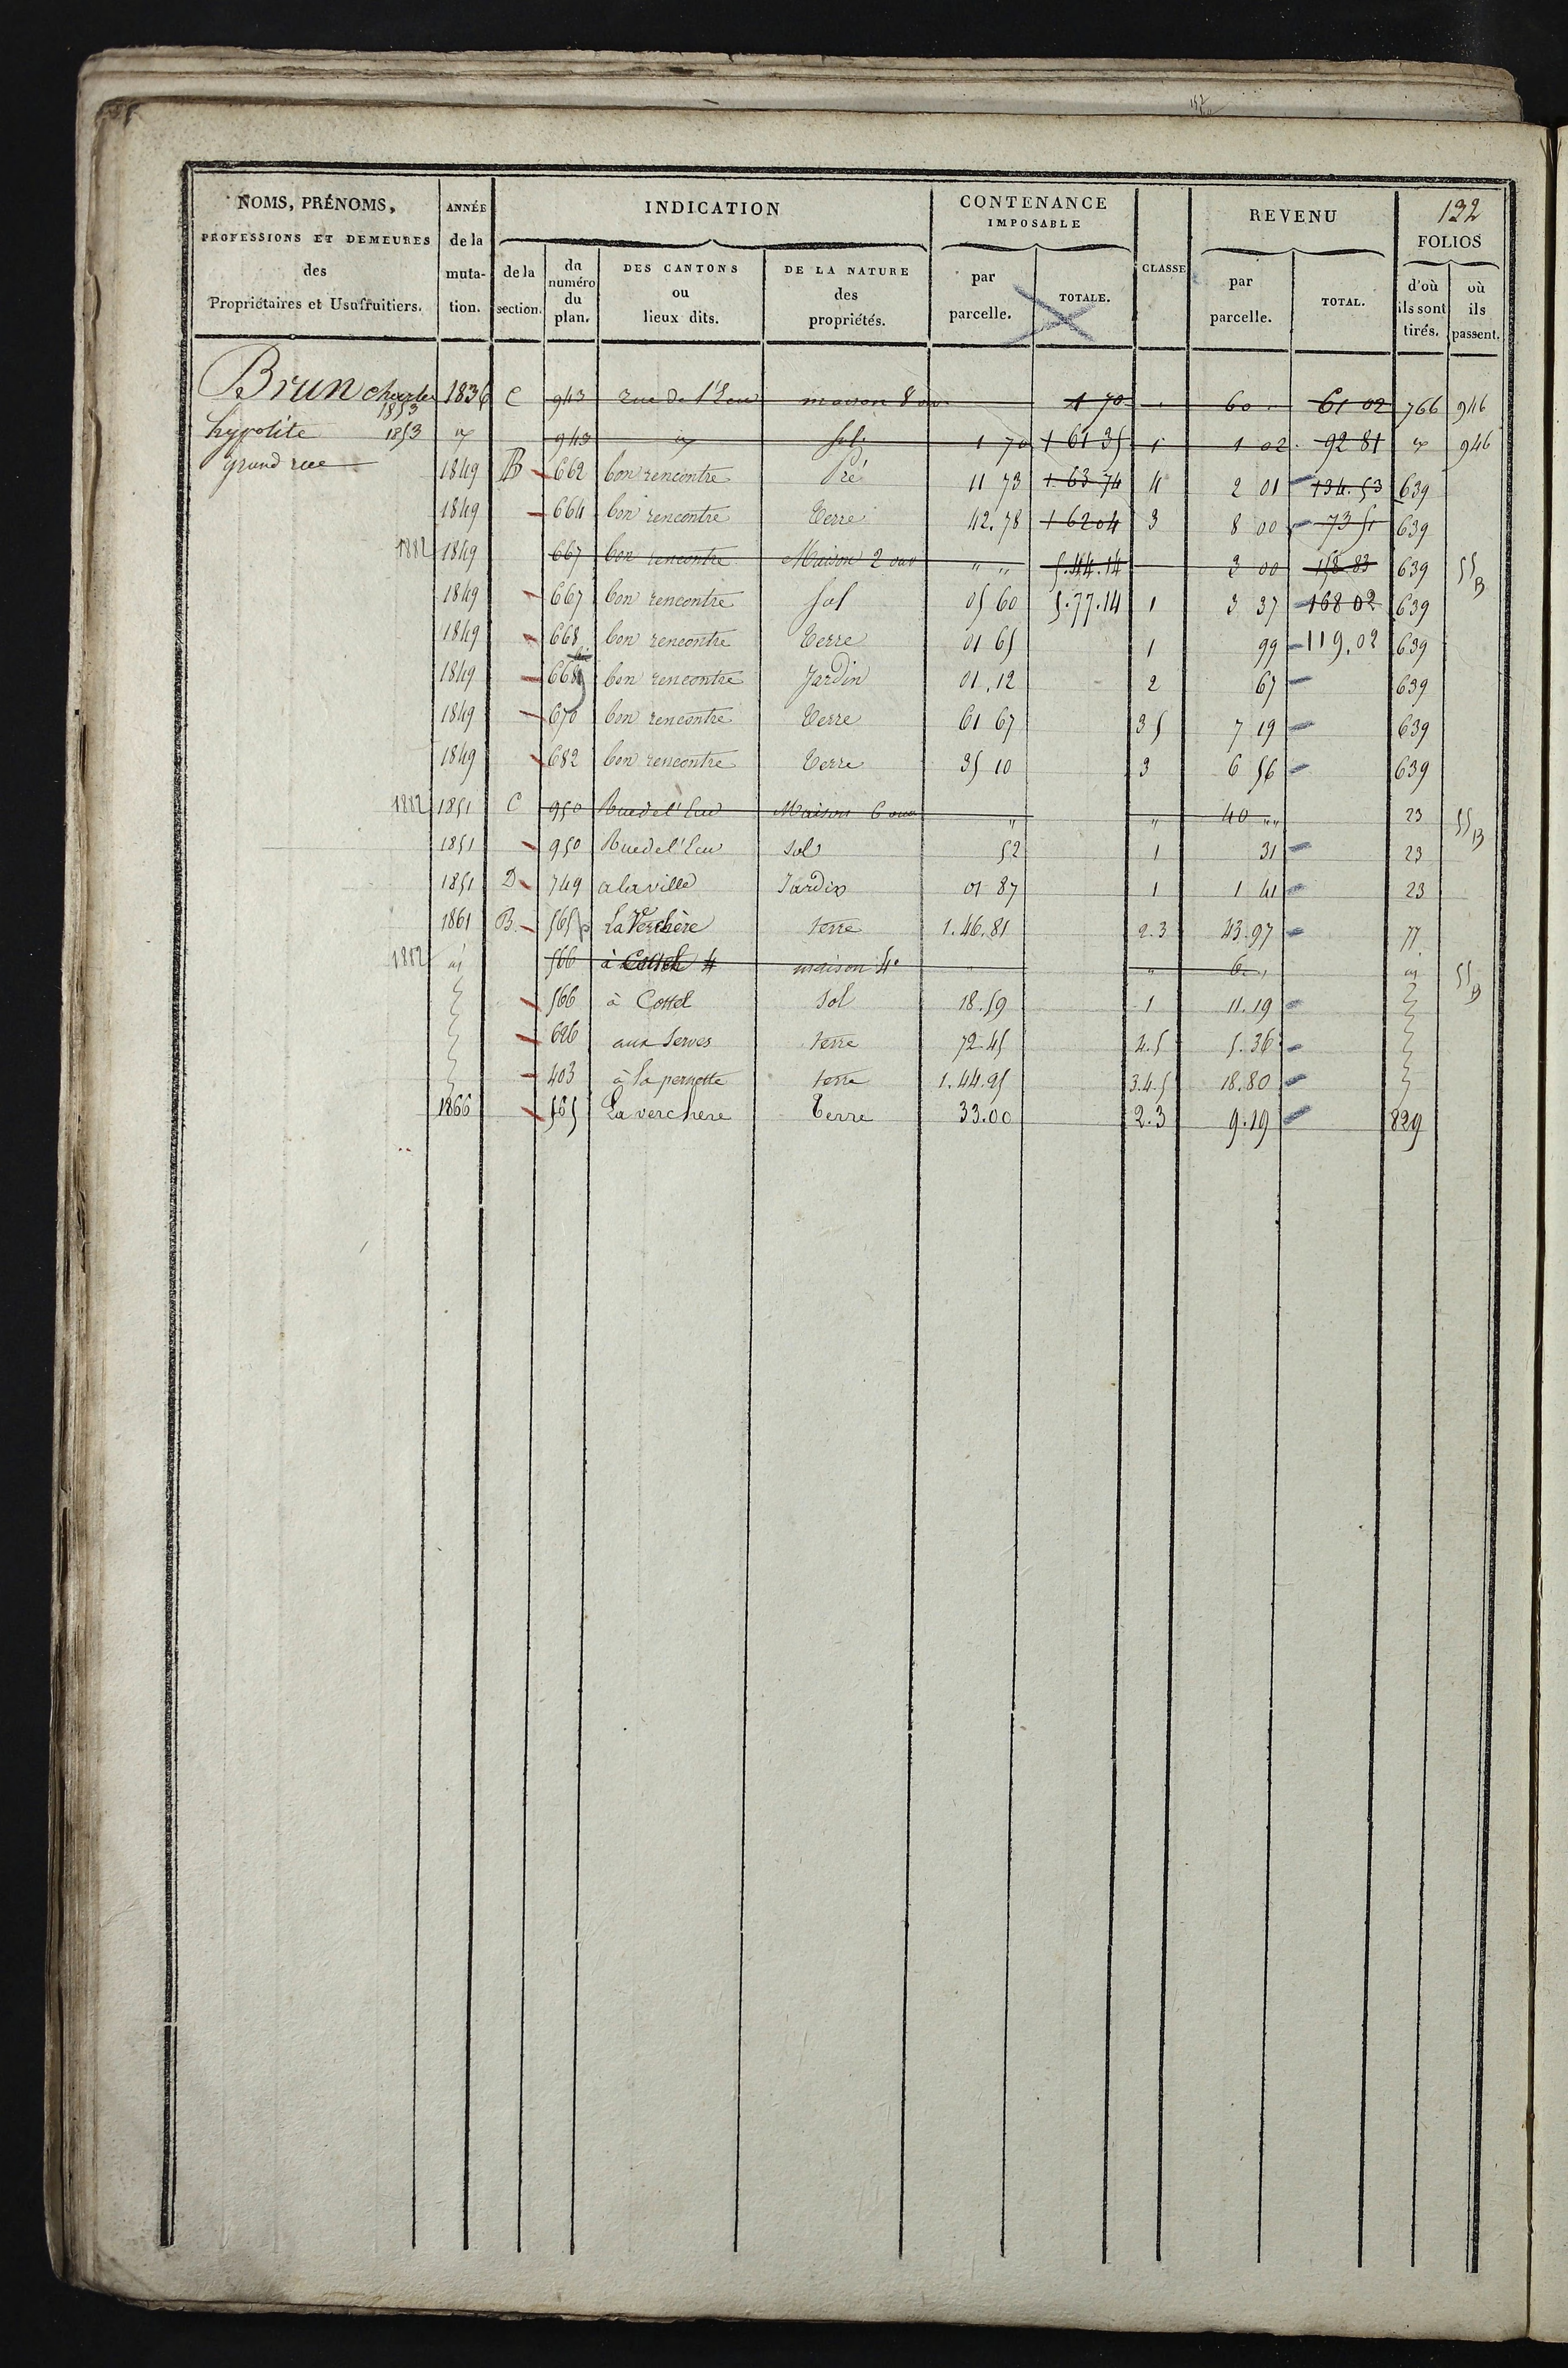 NOMS, PRÉNOMS, PROFESSIONS ET DEMEURES des Propriétaires et Usufruitiers.
ANNÉE de la muta- tion.
INDICATION
de la section.
du numéro du plan.
DES CANTONS ou lieux dits.
DE LA NATURE des propriétés.
CONTENANCE IMPOSABLE
par parcelle.
TOTALE.
CLASSE
REVENU
par parcelle.
TOTAL.
132
FOLIOS
d'où ils sont tirés.
où ils passent.
Brun charles 1853 1836 C 943 rue de l'Eau maison 8 ouv 1 70 60 61 02 766 946
hypolite 1853 943 sol 1 70 1 61 35 1 1 02 92 81 946
grand rue 1849 B 662 bon rencontre Pré 11 73 1 63 74 4 2 01 134.53 639
1849 664 bon rencontre Terre 42.78 1 62 04 3 8 00 73 51 639
1882 1849 667 bon rencontre Maison 2 ouv " " 5.44.14 3 00 158 83 639 55 B
1849 667 bon rencontre sol 05 60 5.77.14 1 3 37 168 02 639
1849 668 bon rencontre Terre 01 65 1 99 119.02 639
1849 668 bon rencontre Jardin 01.12 2 67 639
1849 670 bon rencontre Terre 61 67 3 5 7 19 639
1849 682 bon rencontre Terre 35 10 3 6 56 639
1882 1851 C 950 Rue de l'Eau Maison 6 ouv " " 40 " " 23 55 B
1851 950 Rue de l'Eau Sol 52 1 31 23
1851 D 749 a la ville Jardin 01 87 1 1 41 23
1861 B 565 p La Verchère terre 1.46.81 2.3 43.97 77
1882 id 566 à Cottel maison 4e " " 6 " id 55 B
566 à Cottel Sol 18.59 1 11.19
626 aux Serves terre 72.45 4.5 5.36
403 à la pernette terre 1.44.95 3.4.5 18.80
1866 565 La verchere Terre 33.00 2.3 9.19 829